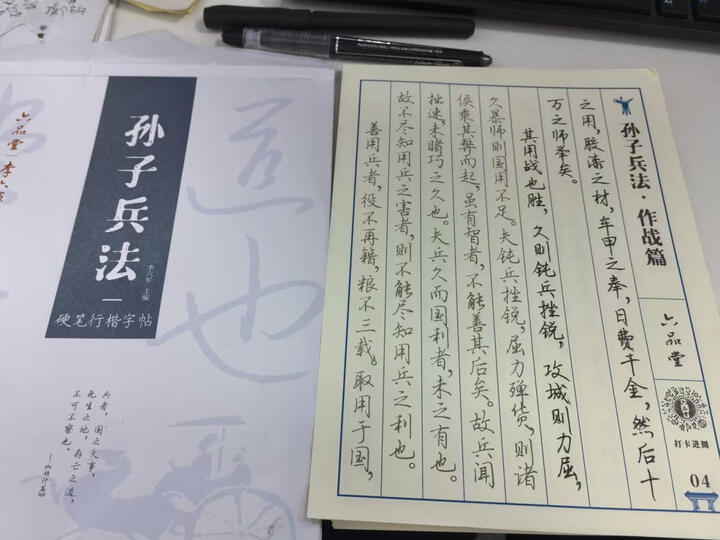 六品堂
李六军
孙子兵法
李六军 主编
硬笔行楷字帖
兵者，国之大事，
死生之地，存亡之道，
不可不察也。
—《始计篇》
道也
孙子兵法·作战篇
六品堂
打卡进阶
04
之用，胶漆之材，车甲之奉，日费千金，然后十
万之师举矣。
其用战也胜，久则钝兵挫锐，攻城则力屈，
久暴师则国用不足。夫钝兵挫锐，屈力殚货，则诸
侯乘其弊而起，虽有智者，不能善其后矣。故兵闻
拙速，未睹巧之久也。夫兵久而国利者，未之有也。
故不尽知用兵之害者，则不能尽知用兵之利也。
善用兵者，役不再籍，粮不三载。取用于国，